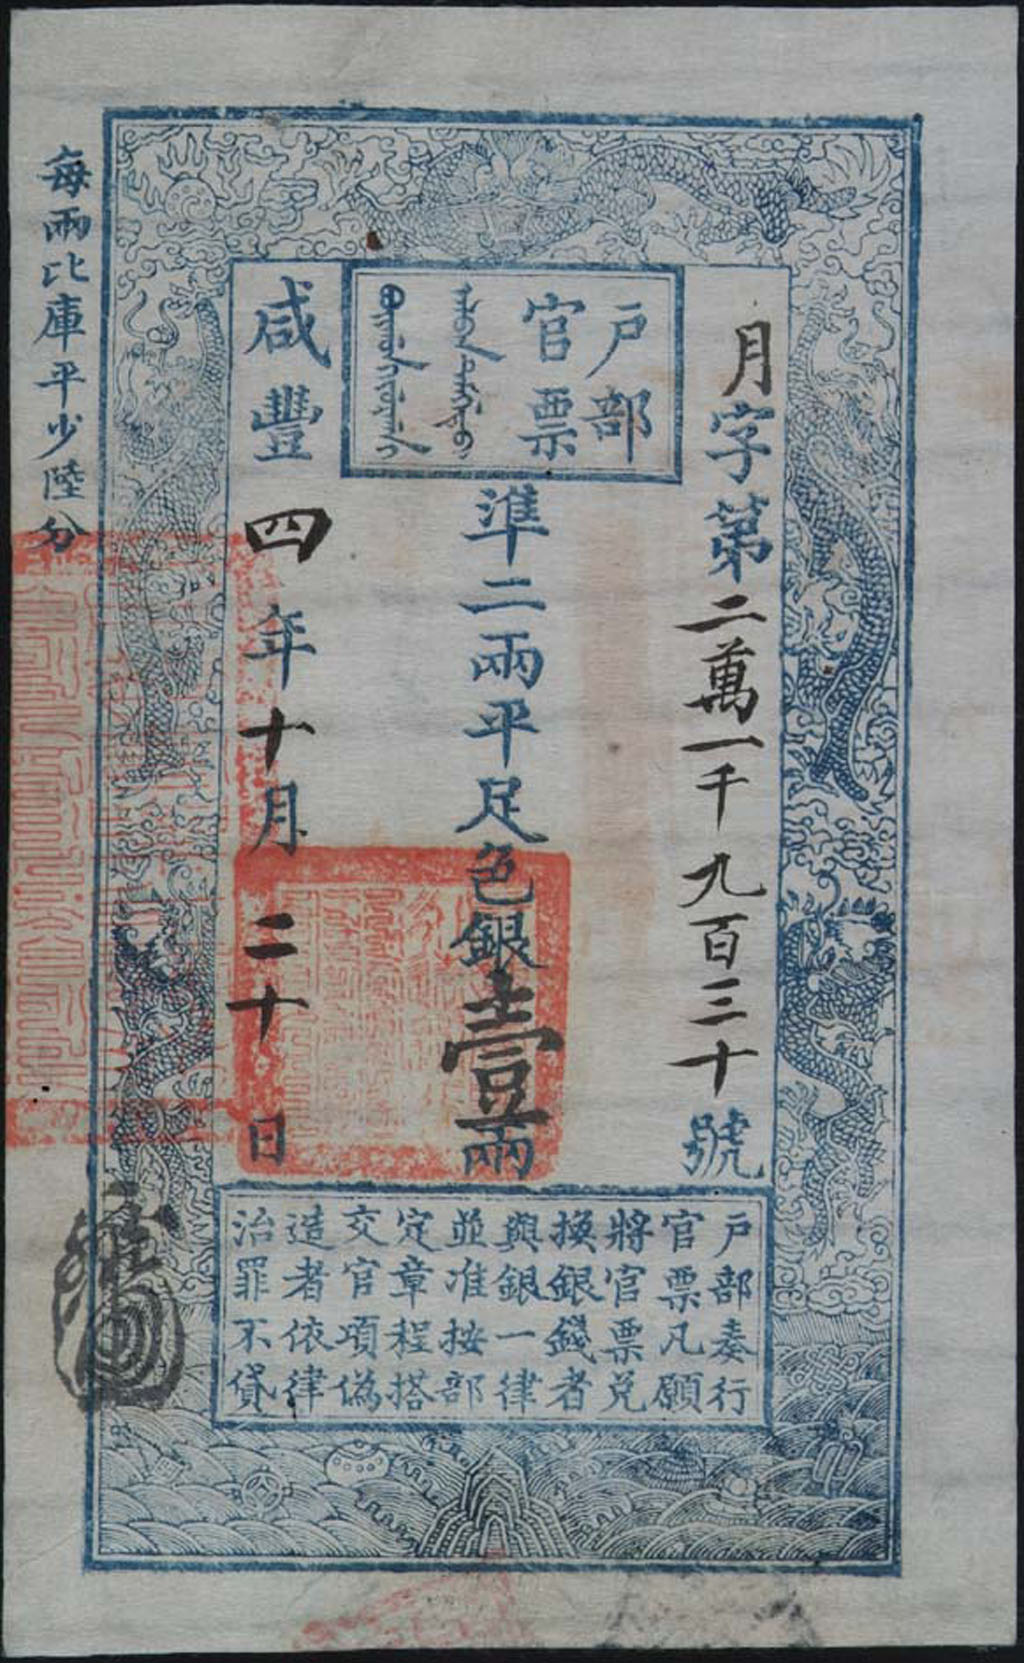 戶部
官票
月字第二萬一千九百三十號
準二兩平足色銀壹兩
咸豐四年十月二十日
每兩比庫平少陸分
戶部奏行
官票凡願
將官票兌
換銀錢者
與銀一律
並准按部
定章程搭
交官項偽
造者依律
治罪不貸